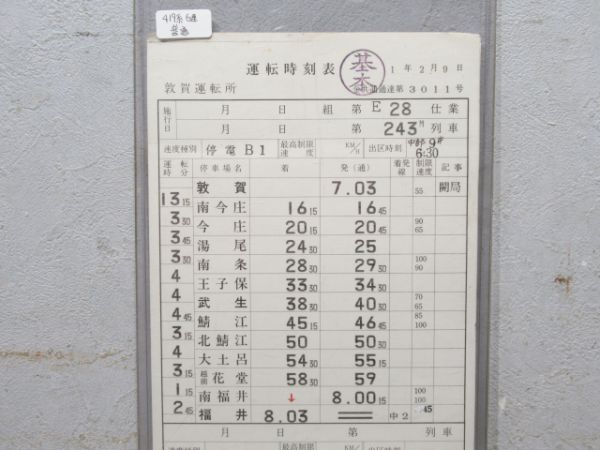 419系 6連
普通
運転時刻表 基本 1年2月9日
敦賀運転所 達第3011号
施行日 月 日 組 第 E 28 仕業
月 日 第 243M 列車
速度種別 停電B1 最高制限速度 KM/H 出区時刻 6:30
運転時分 停車場名 着 発(通) 着発線 制限速度 記事
敦賀 7.03 55 開局
13 15 南今庄 16 15 16 45
3 30 今庄 20 15 20 45 90 65
3 45 湯尾 24 30 25
3 30 南条 28 30 29 30 100 90
4 王子保 33 30 34 30
4 武生 38 30 40 30 70 65
4 45 鯖江 45 15 46 45 85 100
3 15 北鯖江 50 50 30
4 大土呂 54 30 55 15
3 15 越前花堂 58 30 59
1 15 南福井 ↓ 8.00 15 100 100
2 45 福井 8.03 中2 45
月 日 第 列車
速度種別 最高制限 KM/ 出区時刻